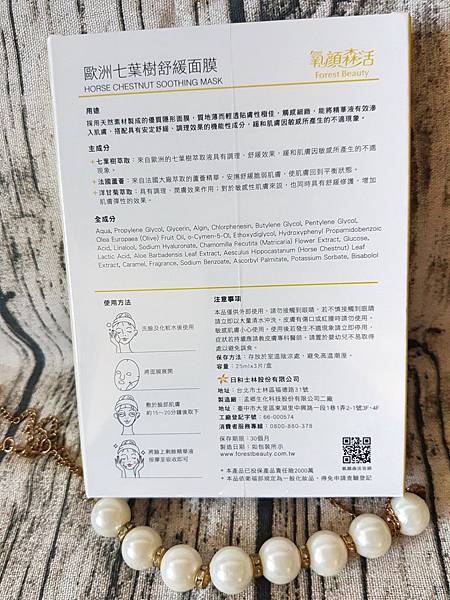 歐洲七葉樹舒緩面膜
HORSE CHESTNUT SOOTHING MASK
氧顏森活
Forest Beauty
用途
採用天然素材製成的優質隱形面膜,質地薄而輕透貼膚性極佳,觸感細緻,能將精華液有效滲
入肌膚,搭配具有安定舒緩、調理效果的機能性成分,緩和肌膚因敏感所產生的不適現象。
主成分
七葉樹萃取:來自歐洲的七葉樹萃取液具有調理、舒緩效果,緩和肌膚因敏感所產生的不適
現象。
法國蘆薈:來自法國大廠萃取的蘆薈精華,安撫舒緩脆弱肌膚,使肌膚回到平衡狀態。
洋甘菊萃取:具有調理、潤膚效果作用;對於敏感性肌膚來說,也同時具有舒緩修護,增加
肌膚彈性的效果。
全成分
Aqua, Propylene Glycol, Glycerin, Algin, Chlorphenesin, Butylene Glycol, Pentylene Glycol,
Olea Europaea (Olive) Fruit Oil, o-Cymen-5-Ol, Ethoxydiglycol, Hydroxyphenyl Propamidobenzoic
Acid, Linalool, Sodium Hyaluronate, Chamomilla Recutita (Matricaria) Flower Extract, Glucose,
Lactic Acid, Aloe Barbadensis Leaf Extract, Aesculus Hippocastanum (Horse Chestnut) Leaf
Extract, Caramel, Fragrance, Sodium Benzoate, Ascorbyl Palmitate, Potassium Sorbate, Bisabolol
使用方法
洗臉及化粧水後使用
將面膜展開
敷於臉部肌膚
約15~20分鐘後取下
將臉上剩餘精華液
按摩至吸收即可
注意事項
本品僅供外部使用,請勿接觸到眼睛,若不慎接觸到眼睛
請立即以大量清水沖洗。皮膚有傷口或紅腫時請勿使用。
敏感肌膚小心使用,使用後若發生不適現象請立即停用,
症狀若持續應請教皮膚專科醫師。請置於嬰幼兒不易取得
處以避免誤食。
保存方法:存放於室溫陰涼處,避免高溫潮溼。
容量:25ml×3片/盒
日和士林股份有限公司
地址:台北市士林區福德路31號
製造廠:孟鄉生化科技股份有限公司二廠
地址:臺中市大里區東湖里中興路一段1巷1弄2-1號3F、4F
工廠登記字號:66-000574
消費者服務專線:0800-880-378
保存期限:30個月
製造日期:如包裝所示
www.forestbeauty.com.tw
氧顏森活官網
* 本產品已投保產品責任險2000萬
* 本品依衛福部規定為一般化妝品,得免申請查驗登記